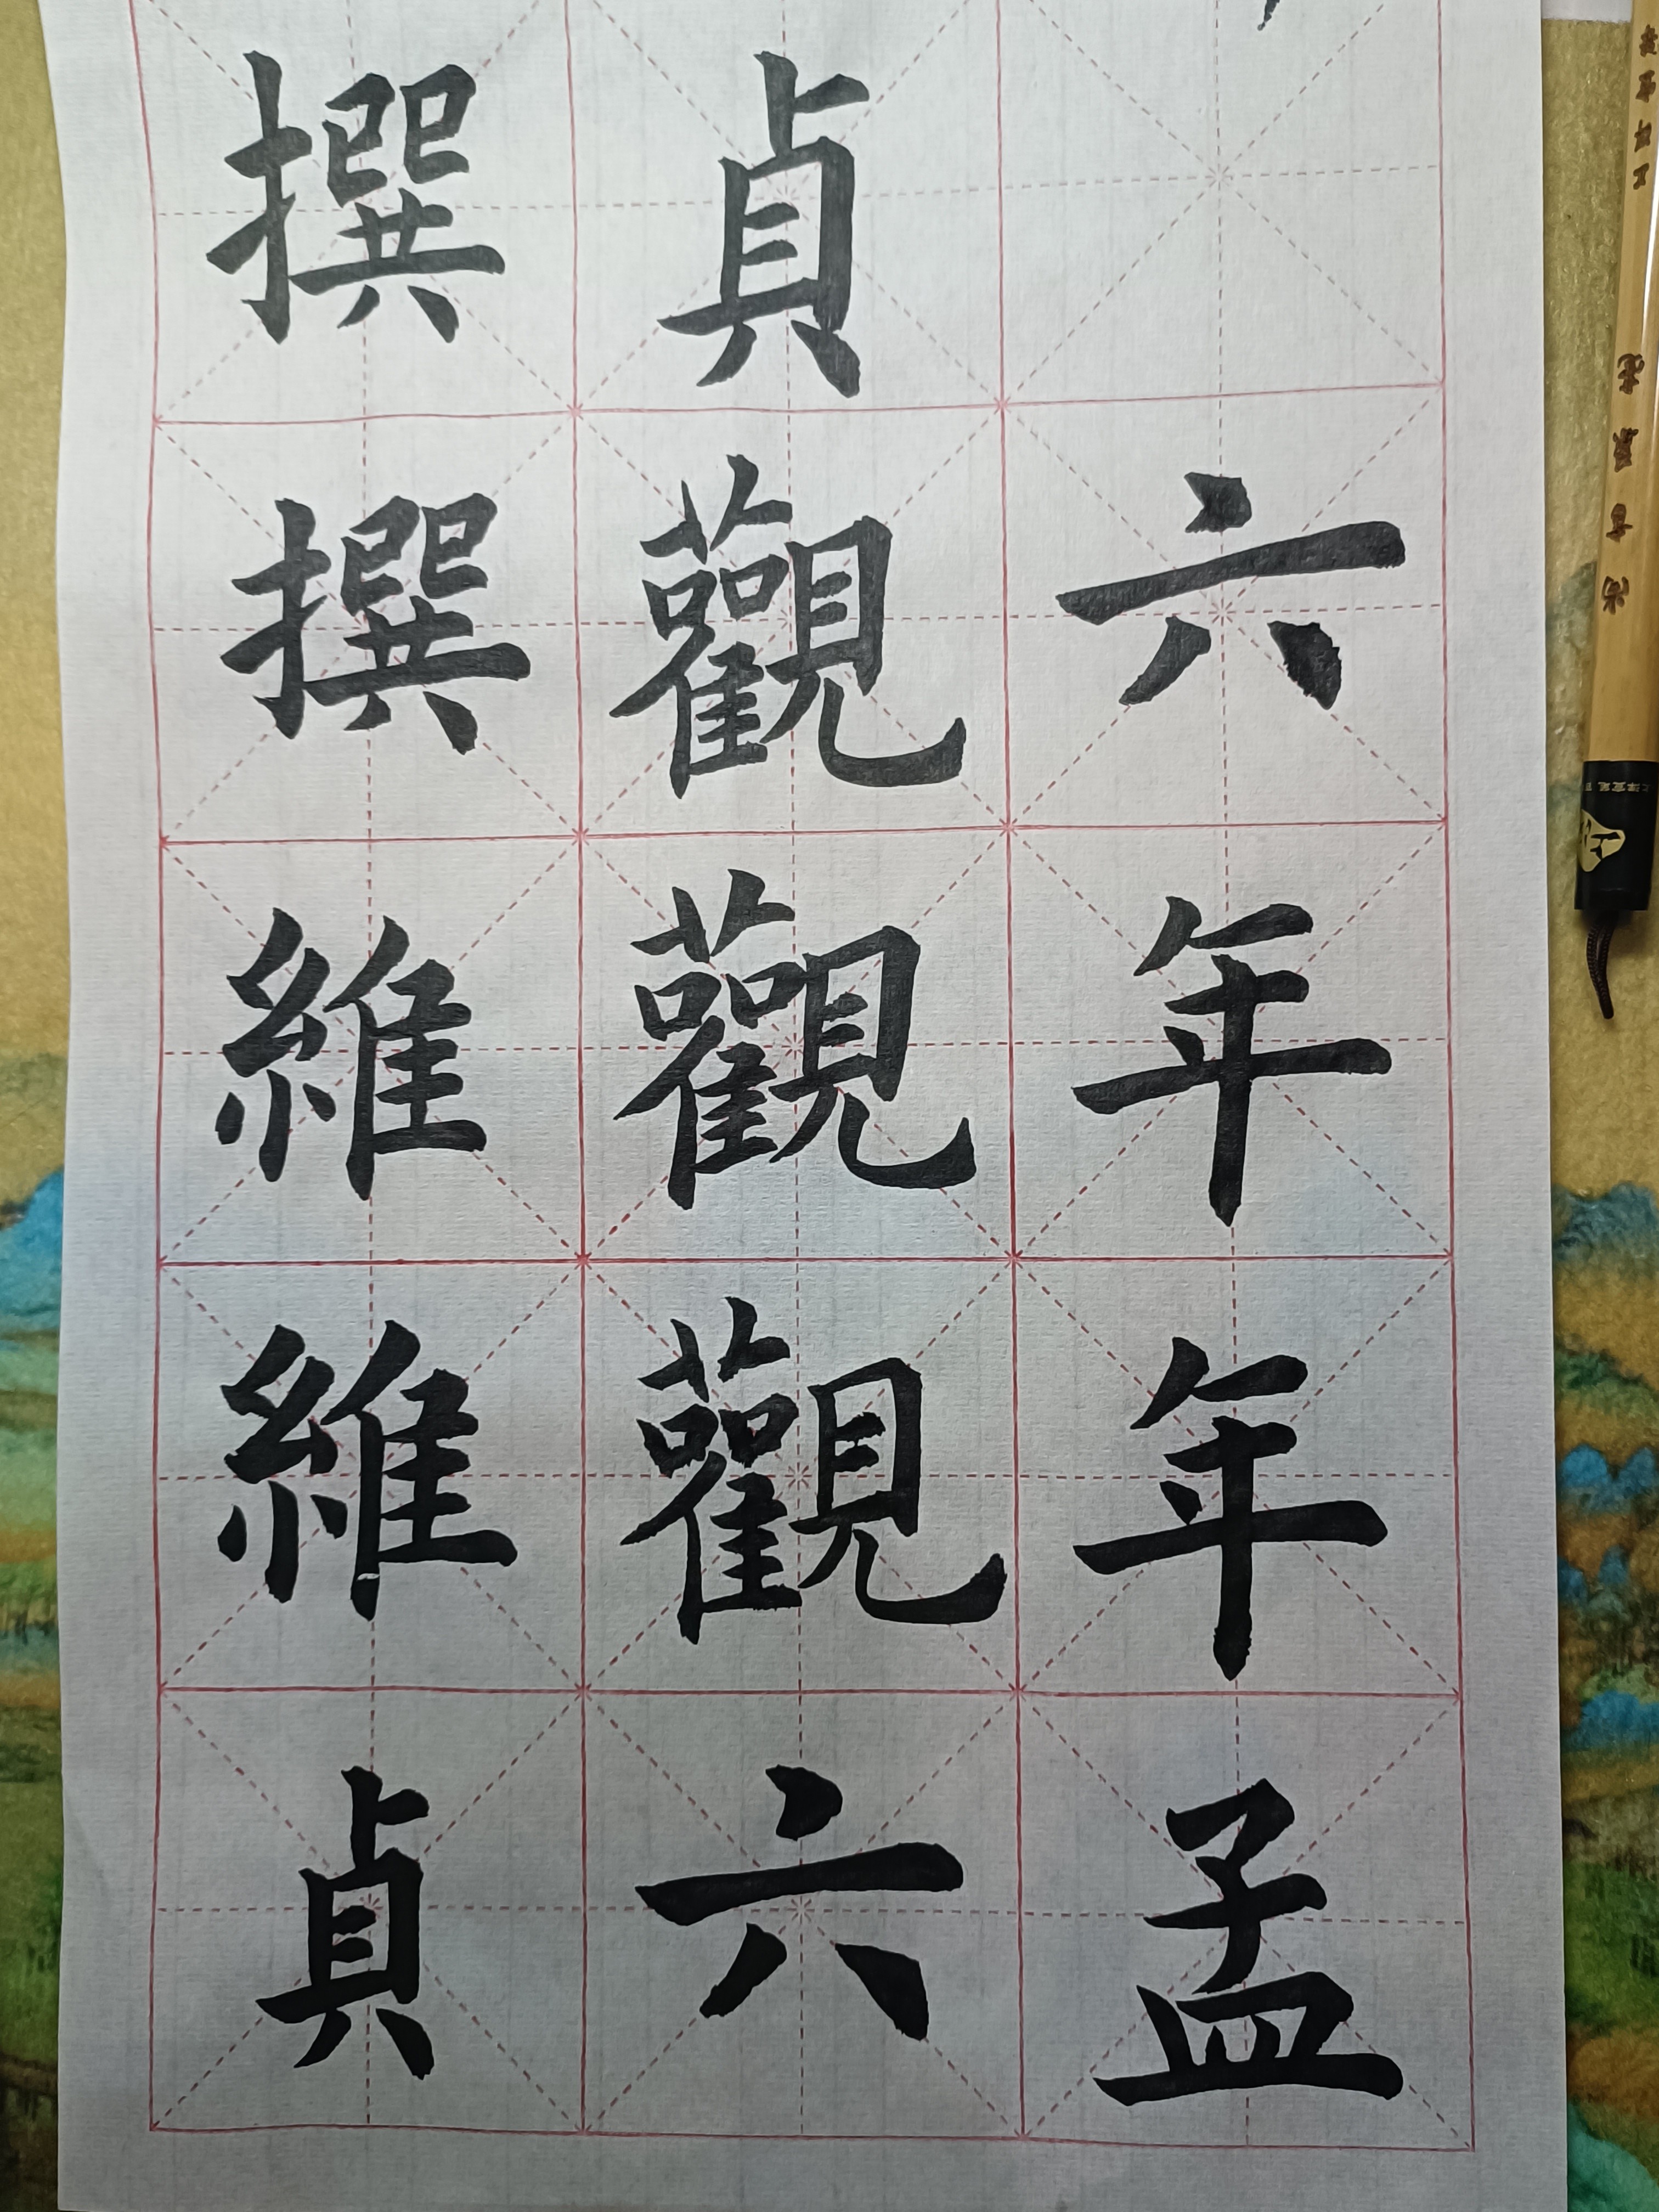 撰撰維維貞
貞觀觀觀六
六年年孟